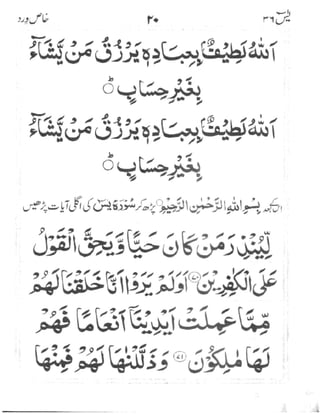 یٰسٓ ۳۶ ۲۰ خاص ورد
اَللّٰهُ لَطِیْفٌۢ بِعِبَادِهٖ یَرْزُقُ مَنْ یَّشَآءُ
بِغَیْرِ حِسَابٍ ○
اَللّٰهُ لَطِیْفٌۢ بِعِبَادِهٖ یَرْزُقُ مَنْ یَّشَآءُ
بِغَیْرِ حِسَابٍ ○
بِسْمِ اللهِ الرَّحْمٰنِ الرَّحِیْمِ پڑھ کر سُوْرَهٔ یٰسٓ کی اگلی آیات پڑھیں
لِّیُنْذِرَ مَنْ كَانَ حَیًّا وَّ یَحِقَّ الْقَوْلُ
عَلَی الْكٰفِرِیْنَ ﴿۷۰﴾ اَوَلَمْ یَرَوْا اَنَّا خَلَقْنَا لَهُمْ
مِّمَّا عَمِلَتْ اَیْدِیْنَاۤ اَنْعَامًا فَهُمْ
لَهَا مٰلِكُوْنَ ﴿۷۱﴾ وَ ذَلَّلْنٰهَا لَهُمْ فَمِنْهَا